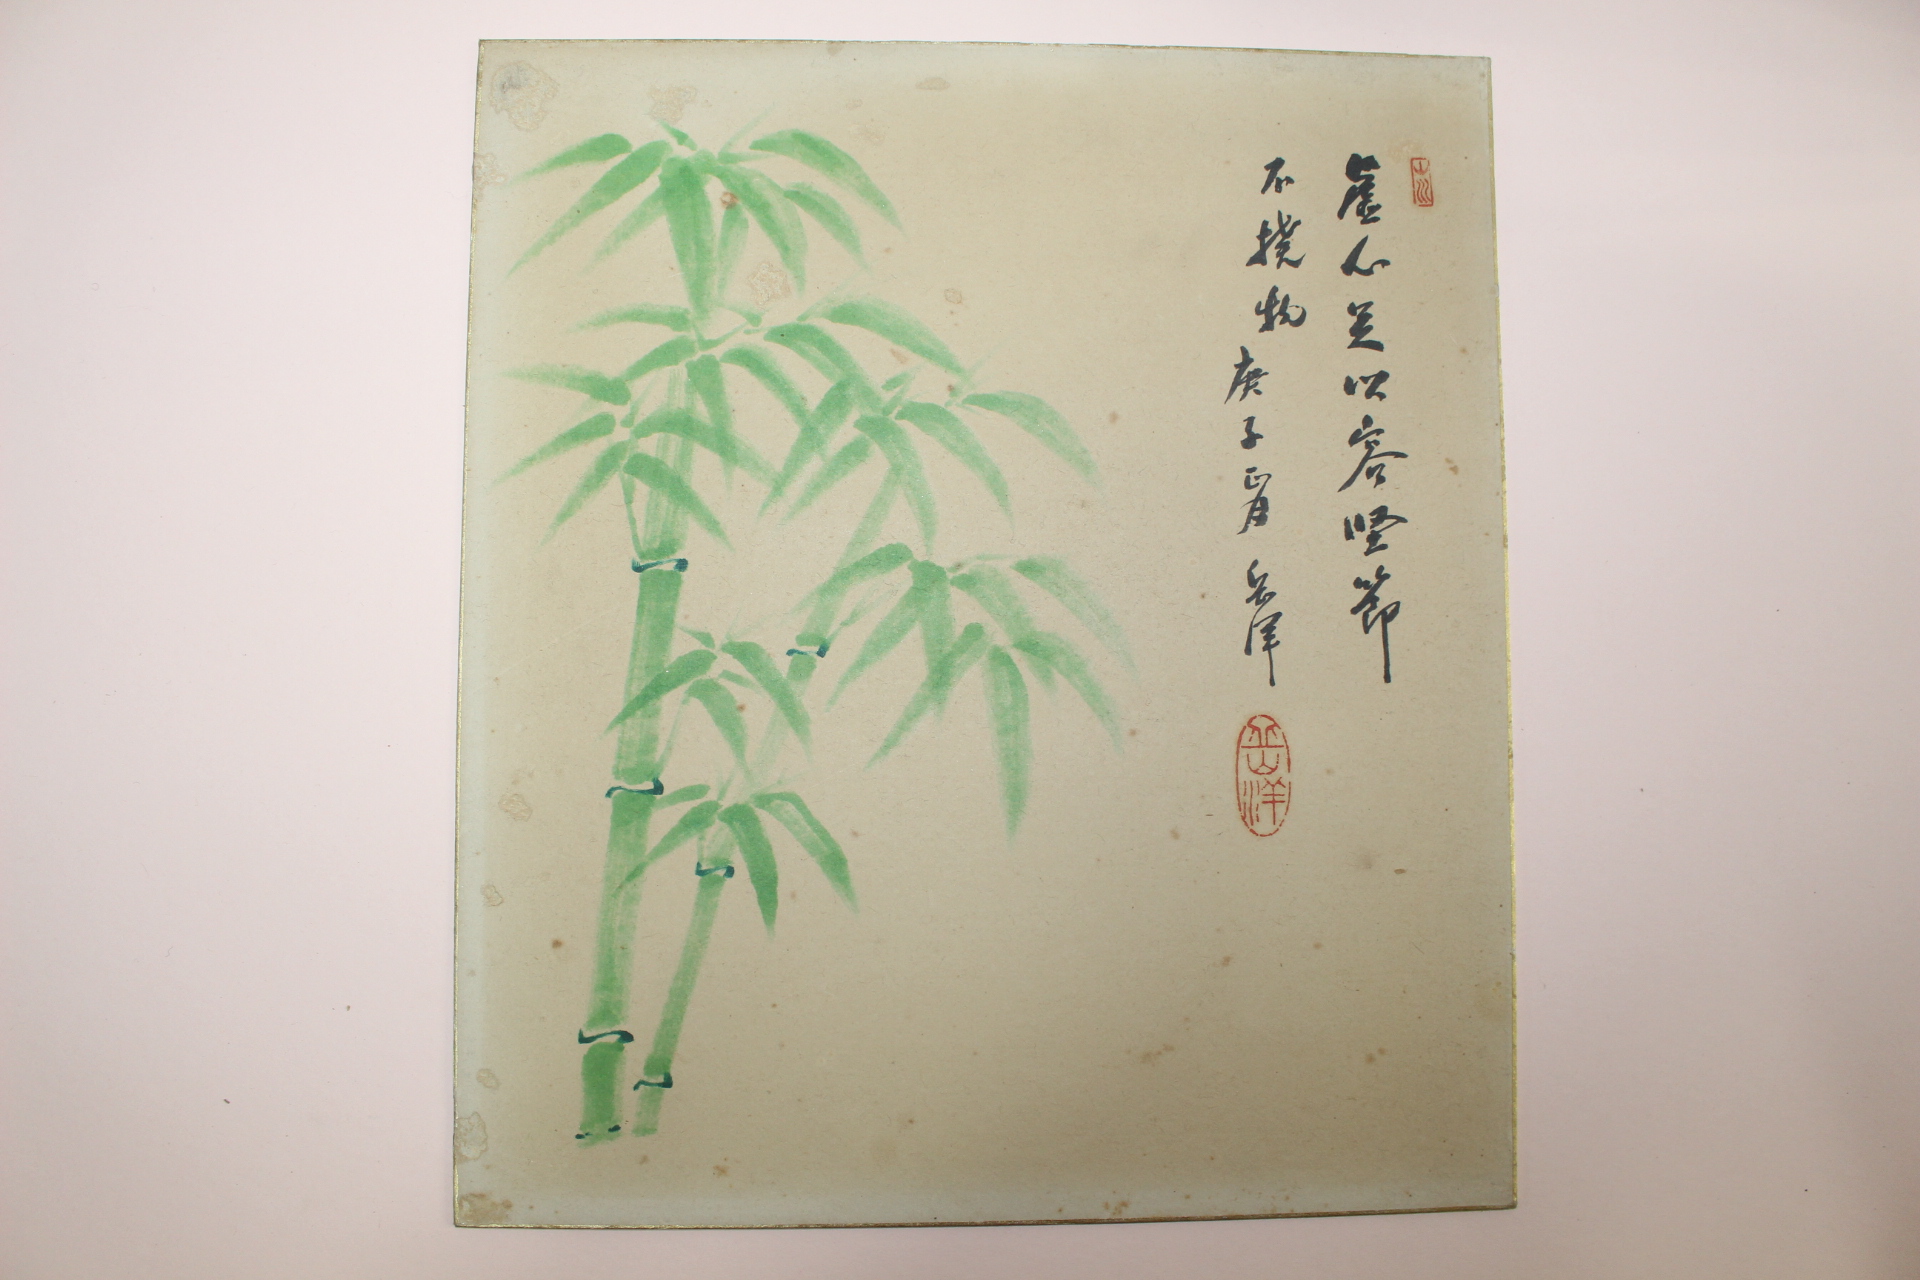 虛心足以容堅節
不撓物
庚子正月 岳洋
岳洋